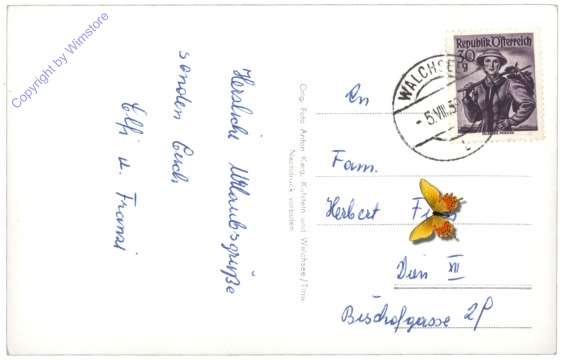 Copyright by Wimstore
Herzliche Urlaubsgrüße
senden Euch
Elfi u. Franzi
Orig. Foto Anton Karg, Kufstein und Walchsee/Tirol
Nachdruck verboten
Republik Österreich
30
g
WALCHSEE
-5.VIII.5
An
Fam.
Herbert
Wien XII
Bischofgasse